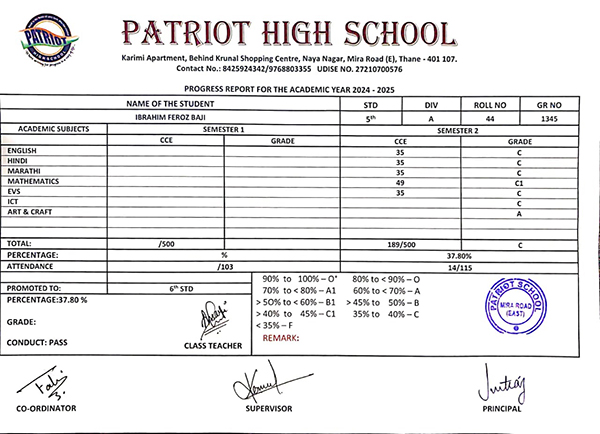 PATRIOT
HIGH SCHOOL
PATRIOT HIGH SCHOOL
Karimi Apartment, Behind Krunal Shopping Centre, Naya Nagar, Mira Road (E), Thane - 401 107.
Contact No.: 8425924342/9768803355 UDISE NO. 27210700576
PROGRESS REPORT FOR THE ACADEMIC YEAR 2024 - 2025
NAME OF THE STUDENT STD DIV ROLL NO GR NO
IBRAHIM FEROZ BAJI 5th A 44 1345
ACADEMIC SUBJECTS SEMESTER 1 SEMESTER 2
CCE GRADE CCE GRADE
ENGLISH 35 C
HINDI 35 C
MARATHI 35 C
MATHEMATICS 49 C1
EVS 35 C
ICT C
ART & CRAFT A
TOTAL: /500 189/500 C
PERCENTAGE: % 37.80%
ATTENDANCE /103 14/115
PROMOTED TO: 6th STD
PERCENTAGE:37.80 %
GRADE:
CONDUCT: PASS
CLASS TEACHER
90% to 100% – O+ 80% to < 90% – O
70% to < 80% – A1 60% to <70% – A
> 50% to < 60% – B1 > 45% to 50% – B
> 40% to 45% – C1 35% to 40% – C
< 35% – F
REMARK:
PATRIOT SCHOOL
MIRA ROAD
(EAST)
CO-ORDINATOR SUPERVISOR PRINCIPAL